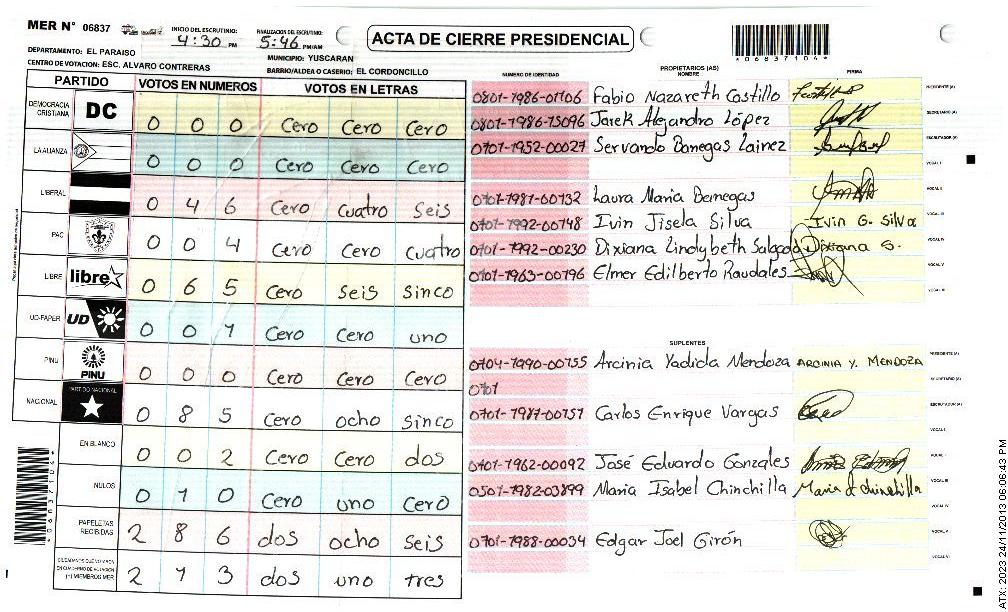 MER N° 06837
INICIO DEL ESCRUTINIO: 4:30 PM
FINALIZACION DEL ESCRUTINIO: 5:46 PM/AM
ACTA DE CIERRE PRESIDENCIAL
*06837104*
DEPARTAMENTO: EL PARAISO
MUNICIPIO: YUSCARAN
CENTRO DE VOTACION: ESC. ALVARO CONTRERAS
BARRIO/ALDEA O CASERIO: EL CORDONCILLO
PARTIDO VOTOS EN NUMEROS VOTOS EN LETRAS
DEMOCRACIA CRISTIANA DC 0 0 0 Cero Cero Cero
LA ALIANZA 0 0 0 Cero Cero Cero
LIBERAL 0 4 6 Cero cuatro seis
PAC 0 0 4 Cero Cero cuatro
LIBRE libre 0 6 5 Cero seis sinco
UD-FAPER UD 0 0 1 Cero Cero uno
PINU PINU 0 0 0 Cero Cero Cero
NACIONAL PARTIDO NACIONAL 0 8 5 Cero ocho sinco
EN BLANCO 0 0 2 Cero Cero dos
NULOS 0 1 0 Cero uno Cero
PAPELETAS RECIBIDAS 2 8 6 dos ocho seis
CIUDADANOS QUE VOTARON EN CUADERNO DE VOTACION (+) MIEMBROS MER 2 1 3 dos uno tres
NUMERO DE IDENTIDAD PROPIETARIOS (AS) NOMBRE FIRMA
0801-1986-01106 Fabio Nazareth Castillo PRESIDENTE (A)
0801-1986-15096 Jarek Alejandro López SECRETARIO (A)
0701-1952-00027 Servando Banegas Lainez ESCRUTADOR (A)
VOCAL I
0701-1981-00132 Laura Maria Banegas VOCAL II
0701-1992-00748 Ivin Jisela Silva Ivin G. Silva VOCAL III
0701-1992-00230 Dixiana Lindybeth Salgado Dixiana S. VOCAL IV
0701-1963-00196 Elmer Edilberto Raudales VOCAL V
SUPLENTES
0704-1990-00155 Arcinia Yadiola Mendoza ARCINIA Y. MENDOZA PRESIDENTE (A)
0701 SECRETARIO (A)
0701-1987-00157 Carlos Enrique Vargas ESCRUTADOR (A)
VOCAL I
0701-1962-00092 José Eduardo Gonzales
0501-1982-03899 Maria Isabel Chinchilla Maria I chinchilla VOCAL III
VOCAL IV
0701-1988-00034 Edgar Joel Girón VOCAL V
*06837104*
ATX: 2023 24/11/2013 06:06:43 PM